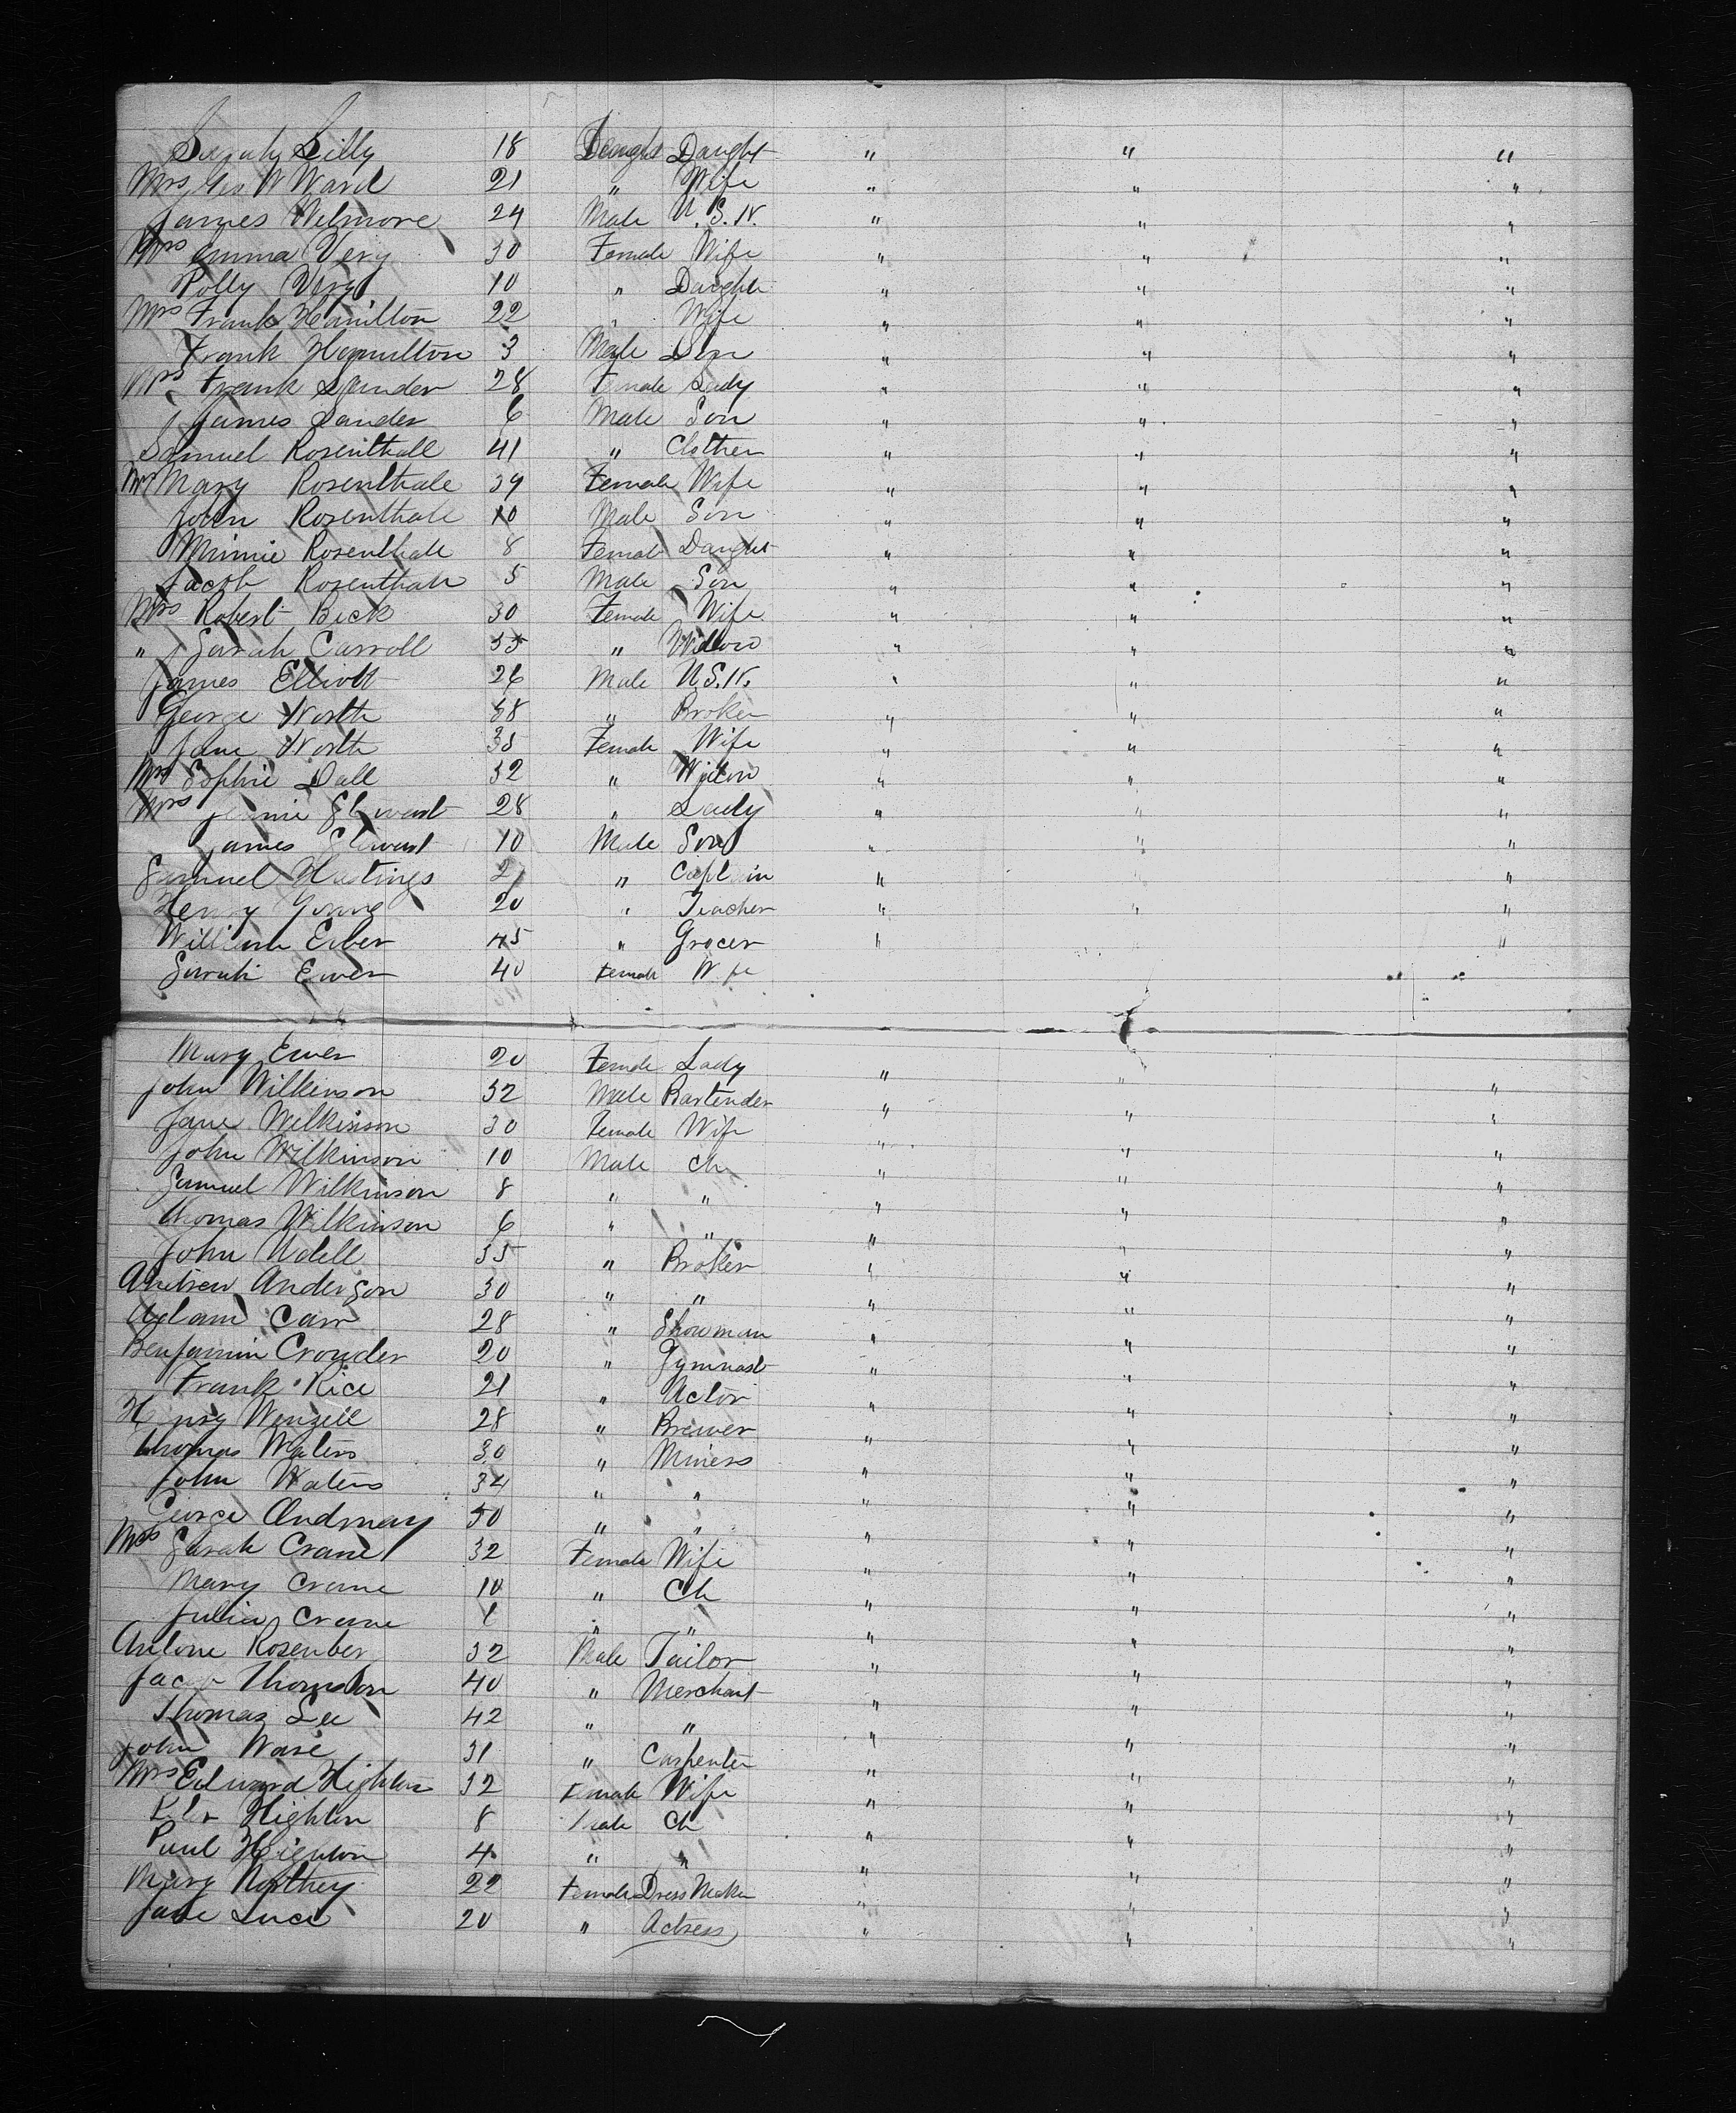 Sarah Lilly 18 Daught Daught " " "
Mrs Geo W Ward 21 " Wife " " "
James Wilmore 24 Male U.S.N. " " "
Mrs Emma Very 30 Female Wife " " "
Polly Very 10 " Daughte " " "
Mrs Frank Hamilton 22 " Wife " " "
Frank Hamilton 3 Male Son " " "
Mrs Frank Sander 28 Female Lady " " "
James Sander 6 Male Son " " "
Samuel Rosenthall 41 " Clothier " " "
Mrs Mary Rosenthale 39 Female Wife " " "
John Rosenthale 10 Male Son " " "
Minnie Rosenthale 8 Female Daught " " "
Jacob Rosenthale 5 Male Son " " "
Mrs Robert Beck 30 Female Wife " " "
" Sarah Carroll 35 " Widow " " "
James Elliott 26 Male U.S.N. " " "
George North 38 " Broker " " "
Jane North 38 Female Wife " " "
Mrs Sophie Dall 32 " " " "
Mrs Jennie Stewart 28 " Lady " " "
James Stewart 10 Male Son " " "
Samuel Hastings " Captain " " "
Henry Young 20 " Teacher " " "
William Ewer 45 " Grocer " "
Sarah Ewer 40 Female Wife
Mary Ewer 20 Female Lady " "
John Wilkinson 32 Male Bartender " " "
Jane Wilkinson 30 Female Wife " " "
John Wilkinson 10 Male Ch " " "
Samuel Wilkinson 8 " " " " "
Thomas Wilkinson 6 " " " " "
John Udell 35 " Broker " " "
Andrew Anderson 30 " " " " "
Adam Carr 28 " Showman " " "
Benjamin Crowder 20 " Gymnast " " "
Frank Rice 21 " Actor " " "
Henry Wenzell 28 " Brewer " " "
Thomas Waters 30 " Miners " " "
John Waters 34 " " " " "
George Andmay 50 " " " " "
Mrs Sarah Crane 32 Female Wife " " "
Mary Crane 10 " Ch " " "
Julia Crane 6 " " " " "
Antone Rosenber 32 Male Tailor " " "
Jacob Thomston 40 " Merchant " " "
Thomas Lee 42 " " " " "
John Ware 31 " Carpenter " " "
Mrs Edward Highton 32 Female Wife " " "
Highton 8 Male Ch " " "
Paul Highton 4 " " " " "
Mary Northey 22 Female Dress Maker " " "
Jane Luce 20 " Actress " " "